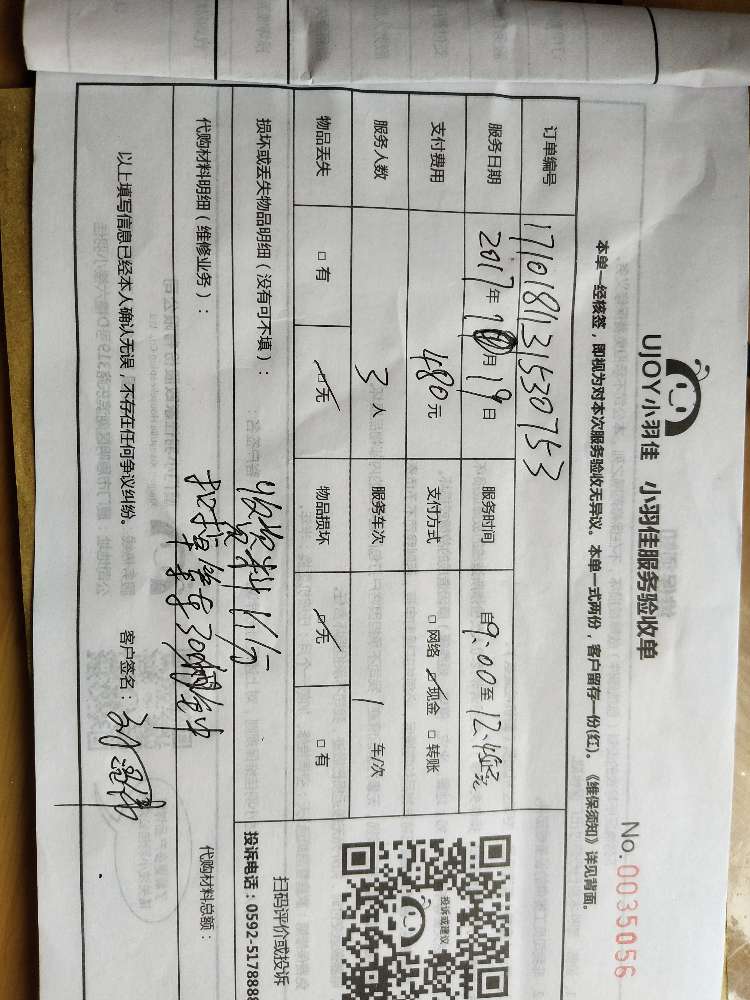 UJOY小羽佳 小羽佳服务验收单
No. 0035056
本单一经核签，即视为对本次服务验收无异议。本单一式两份，客户留存一份(红)。《维保须知》详见背面。
订单编号 171018131530753
服务日期 2017年10月19日 服务时间 自9:00至12:45
支付费用 480元 支付方式 □网络 □现金 □转账
服务人数 3人 服务车次 1车/次
物品丢失 □有 □无 物品损坏 □无 □有
损坏或丢失物品明细（没有可不填）：
代购材料明细（维修业务）：
代购材料总额：
以上填写信息已经本人确认无误，不存在任何争议纠纷。 客户签名：
投诉或建议
扫码评价或投诉
投诉电话：0592-5178888